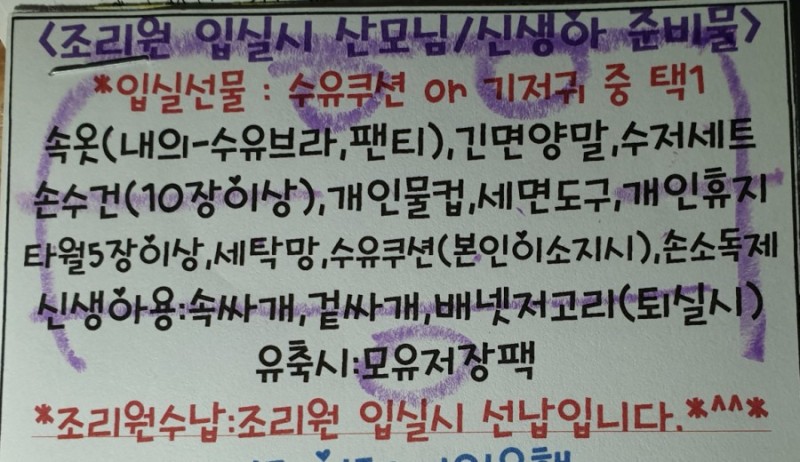 <조리원 입실시 산모님/신생아 준비물>
*입실선물 : 수유쿠션 or 기저귀 중 택1
속옷(내의-수유브라,팬티),긴면양말,수저세트
손수건(10장이상),개인물컵,세면도구,개인휴지
타월5장이상,세탁망,수유쿠션(본인이소지시),손소독제
신생아용:속싸개,겉싸개,배넷저고리(퇴실시)
유축시:모유저장팩
*조리원수납:조리원 입실시 선납입니다.*^^*